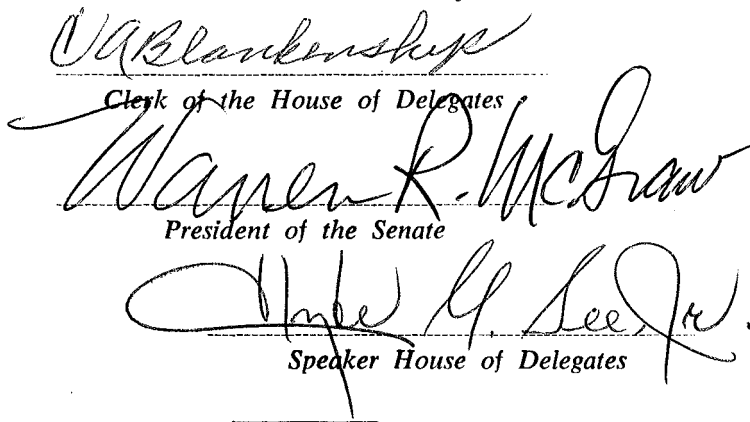 CABlankenship
Clerk of the House of Delegates
Warren R. McGraw
President of the Senate
Clyde M. See, Jr.
Speaker House of Delegates